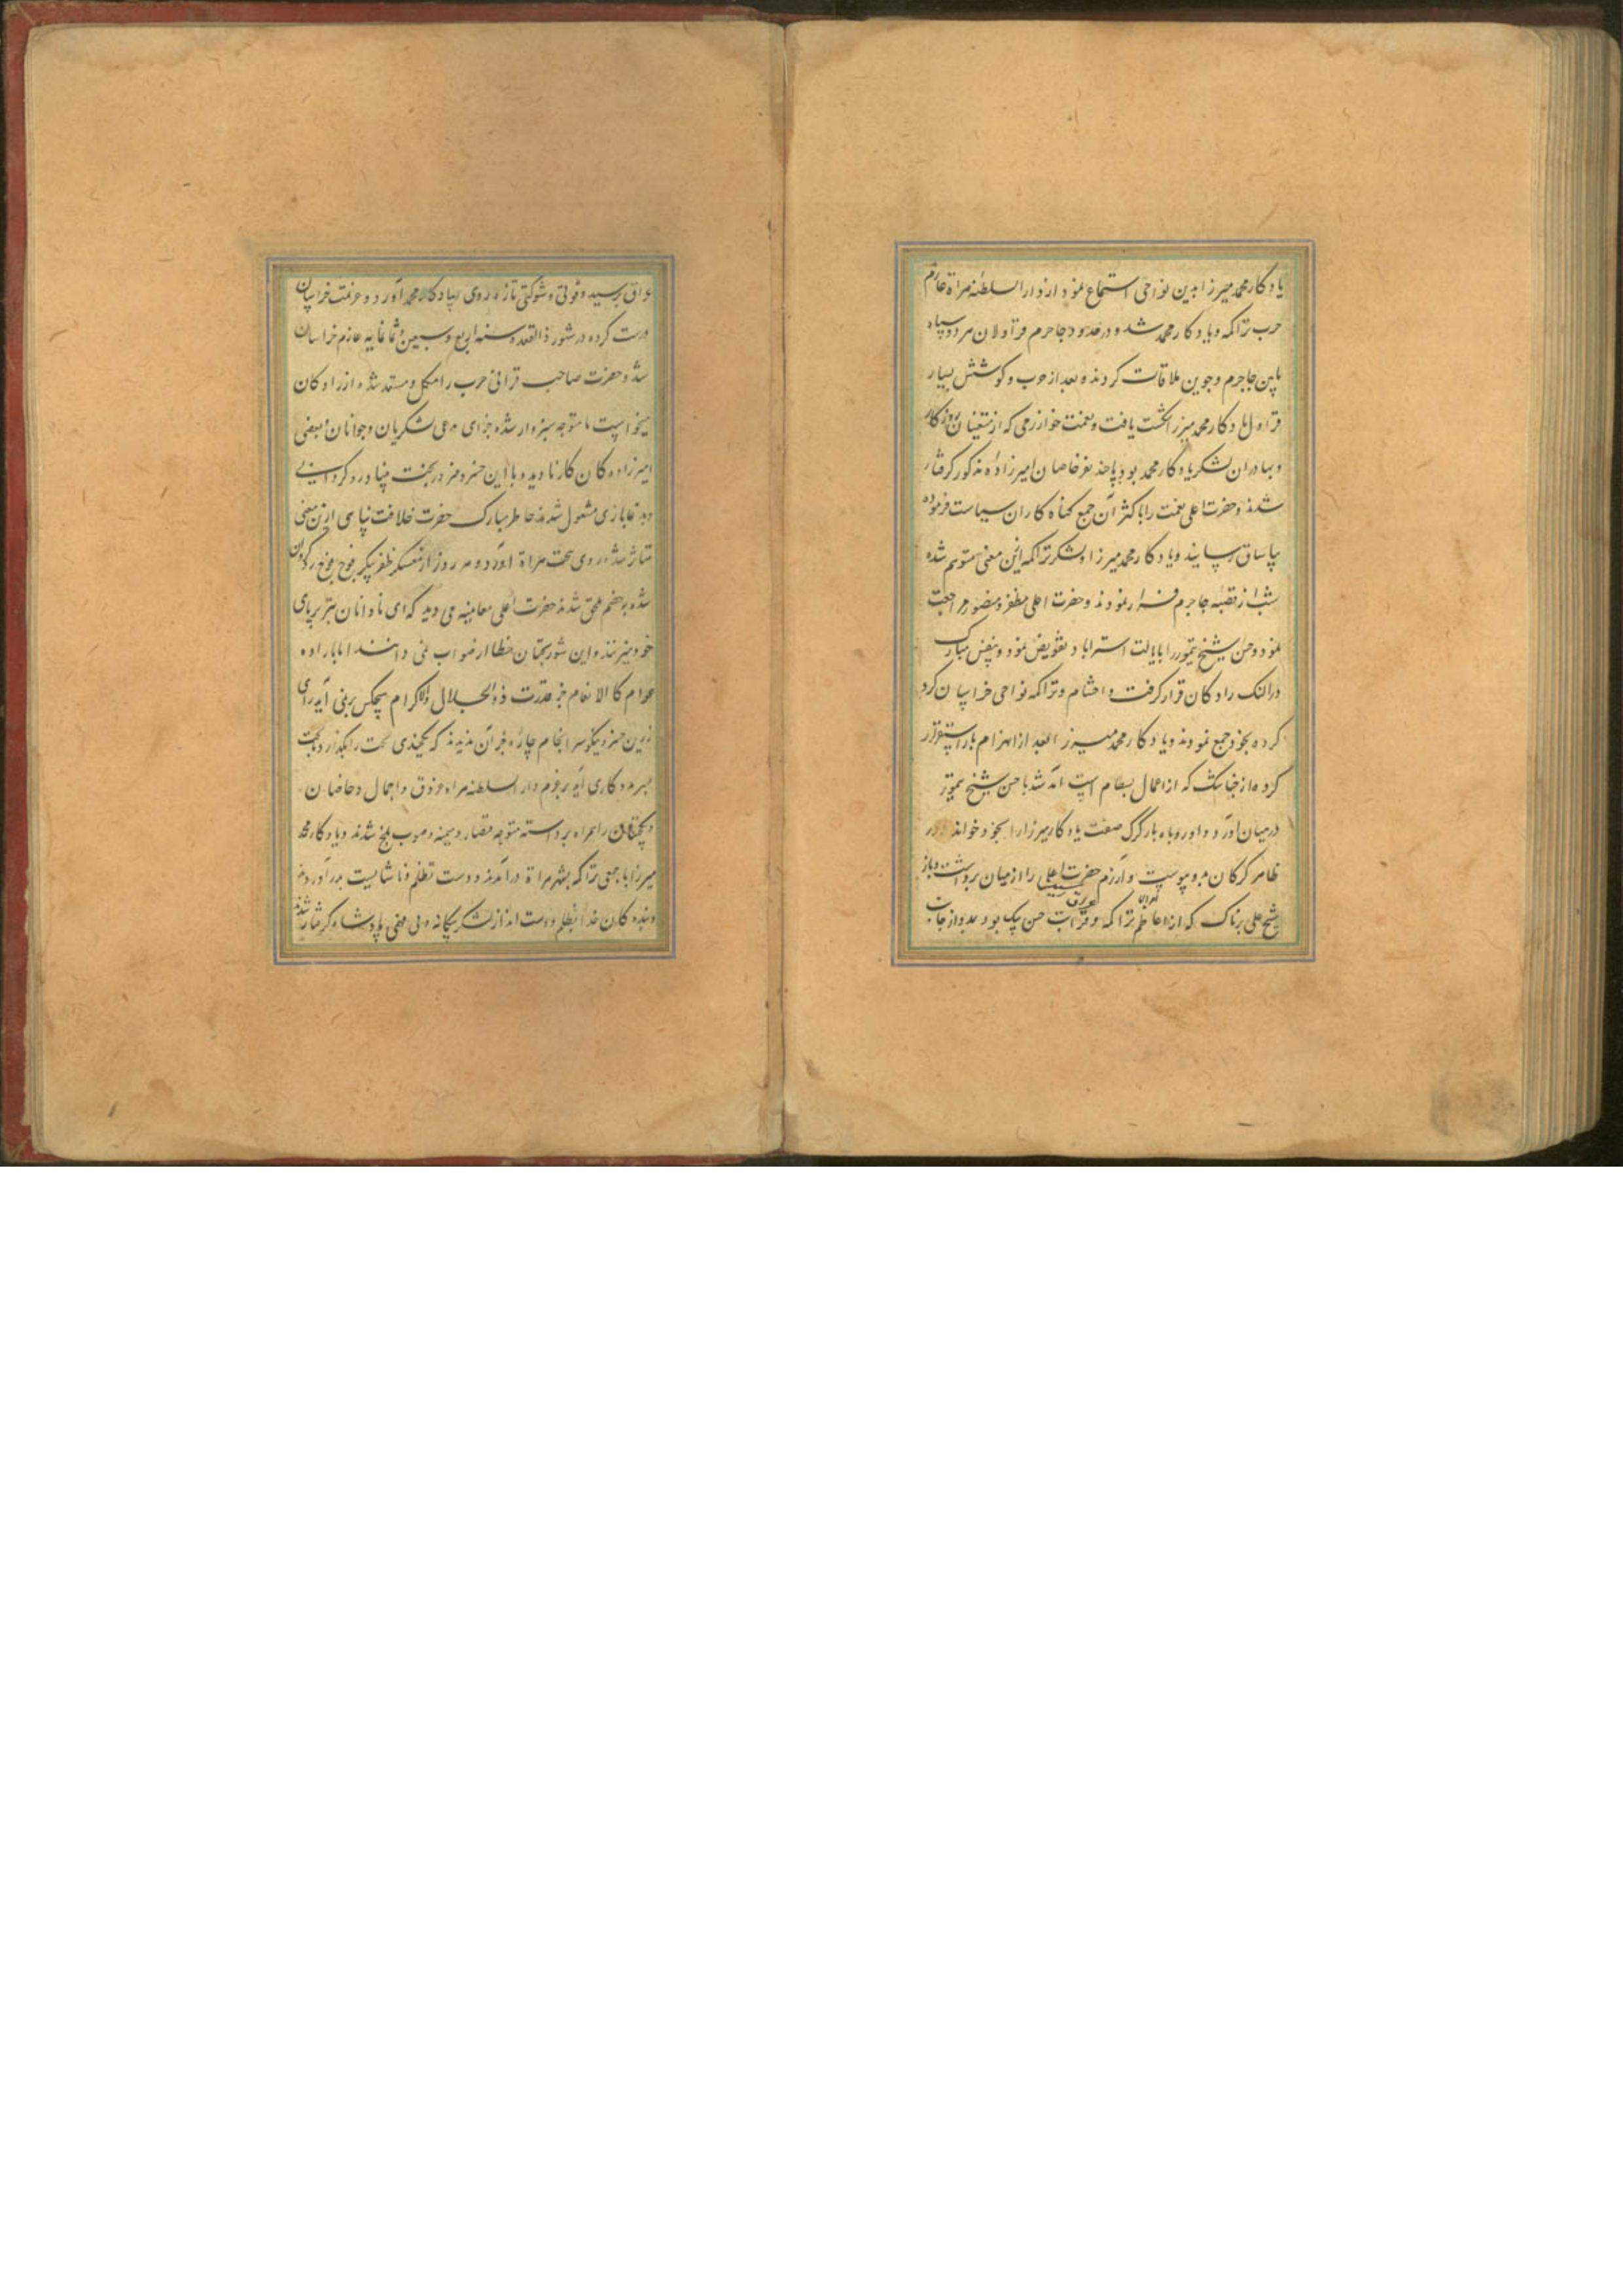 یادکار محمد میرزا بدین نواحی استماع نمود از دار السلطنه هراة عازم
حرب تراکمه و یادکار محمد شد و در حدود جاجرم قراولان هر دو سپاه
مابین جاجرم و جوین ملاقات کردند و بعد از حرب و کوشش بسیار
قراول یادکار محمد میرزا شکست یافت و نعمت خوارزمی که از متعینان روزکار
و بهادران لشکر یادکار محمد بود با چند نفر خاصان امیرزاده مذکور کرفتار
شدند و حضرت اعلی نعمت را با کثر آن جمع کناه کاران سیاست فرموده
بیاساق رسانیدند و یادکار محمد میرزا و لشکر تراکمه ازین معنی متوهم شده
شب از قصبه جاجرم فرار نمودند و حضرت اعلی مظفر و منصور مراجعت
نمود و حسن شیخ تیمور را بایالت استراباد تفویض نمود و بنفس مبارک
در النک رادکان قرار کرفت و احشام و تراکمه نواحی خراسان کرد
کرده بخود جمع نمودند و یادکار محمد میرزا بعد از انهزام باز استقرار
کرده از که از اعمال بسطام است آمد شد با حسن شیخ تیمور
درمیان آورد و او روباه بار کرک صفت یادکار میرزا را بخود خواند و در
ظاهر کرکان بدو پیوست و آزرم حضرت اعلی را از میان برداشت و باز
شیخ علی پرناک که از اعاظم امراء تراکمه و قرابت حسن بیک بود بمدد از جانب
عراق رسید و قوتی و شوکتی تازه روی بیادکار محمد آورد و عزیمت خراسان
درست کرده در شهور ذالقعده سنه اربع و سبعین و ثمانمایه عازم خراسان
شد و حضرت صاحب قرانی حرب را مکمل و مستعد شده از رادکان
میخواست تا متوجه سبزوار شده جزای لشکریان و جوانان و بعضی
امیرزاده کان کار نادیده با این خسرو هنرور بجنت
و دغابازی مشغول شدند خاطر مبارک حضرت خلافت پناهی ازین معنی
متاثر شد و روی بتخت هراة آورد و هر روز از معسکر ظفر پیکر فوج فوج
شده بخصم ملحق شدند حضرت اعلی معاینه می دید که ای نادانان تبر بر پای
خود میزنند و این شوربختان خطا از صواب نمی دانند اما با راده
عوام کا الانعام جز قدرت ذو الجلال و الاکرام هیچکس بر نمی آید رای
زرین خسرو نیکو سرانجام چاره جز آن ندید که یکچندی تخت را بکذارد
بسر دار السلطنه هراة و اجمال و خاصان
و را همراه برداشته متوجه و میمنه و صوب بلخ شدند و یادکار محمد
میرزا با جمعی تراکمه بشهر هراة درآمدند و دست تظلم و ناشایست برآوردند
و بنده کان خدا بظلم و دست انداز لشکر بیکانه و بی پادشاه کرفتار شدند